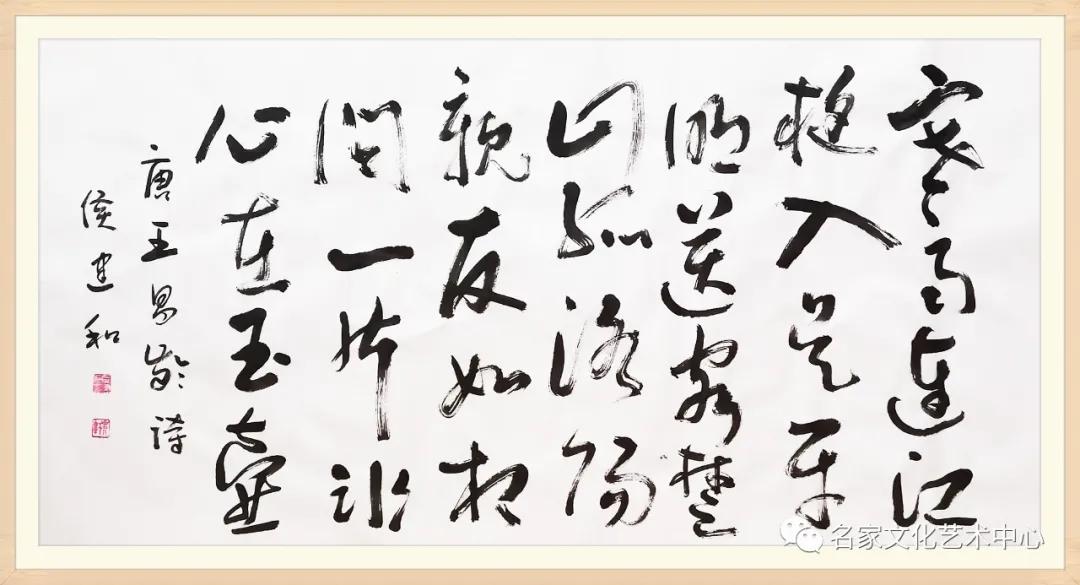 寒雨連江
夜入吳平
明送客楚
山孤洛陽
親友如相
問一片冰
心在玉壺
唐王昌齡詩
侯建和
名家文化艺术中心